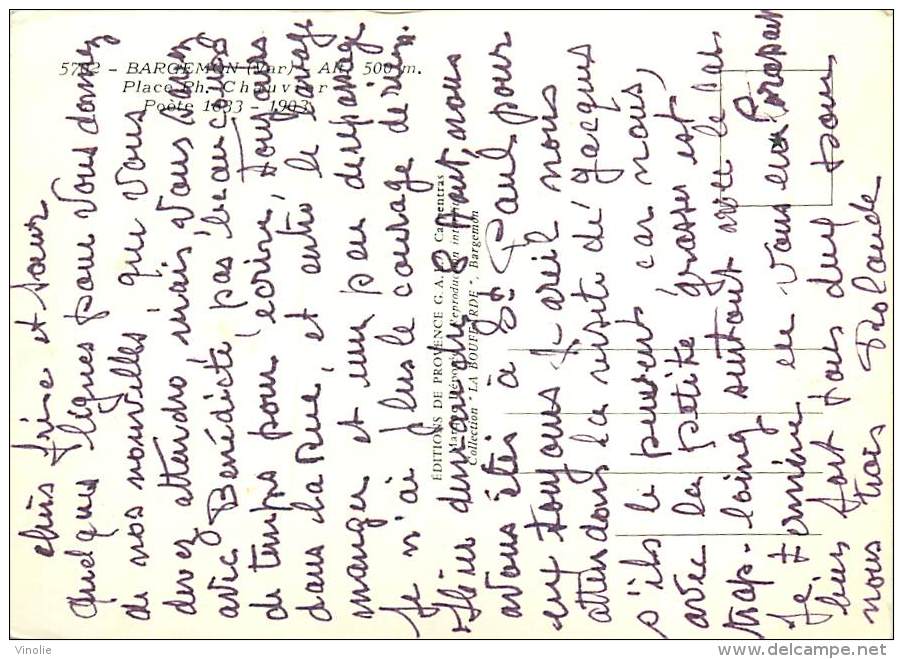 5782 - BARGEMON (Var) - Alt. 500 m.
Place Ph. Chauvier
Poète 1833 - 1903
EDITIONS DE PROVENCE G.A.L. Carpentras
Marque déposée Reproduction interdite
Collection "LA BOUFFARDE", Bargemon
chers frère et sœur
quelques lignes pour vous donnez
de nos nouvelles, que vous
devez attendre mais vous savez
avec Bénédicte pas beaucoup
de temps pour écrire, toujours
dans la rue, et entre le lavage
manger et un peu de repassage
Je n'ai plus le courage de rien.
Hier dimanche 8 Aout, nous
avons étés à St Paul pour
eux toujours pareil nous
attendons la visite de Jacques
s'ils le peuvent car nous,
avec la petite Grasse est
trop loing surtout avec le car
Je termine en vous embrassant
bien fort tous deux pour
nous trois Rolande
Vinolie
delcampe.net